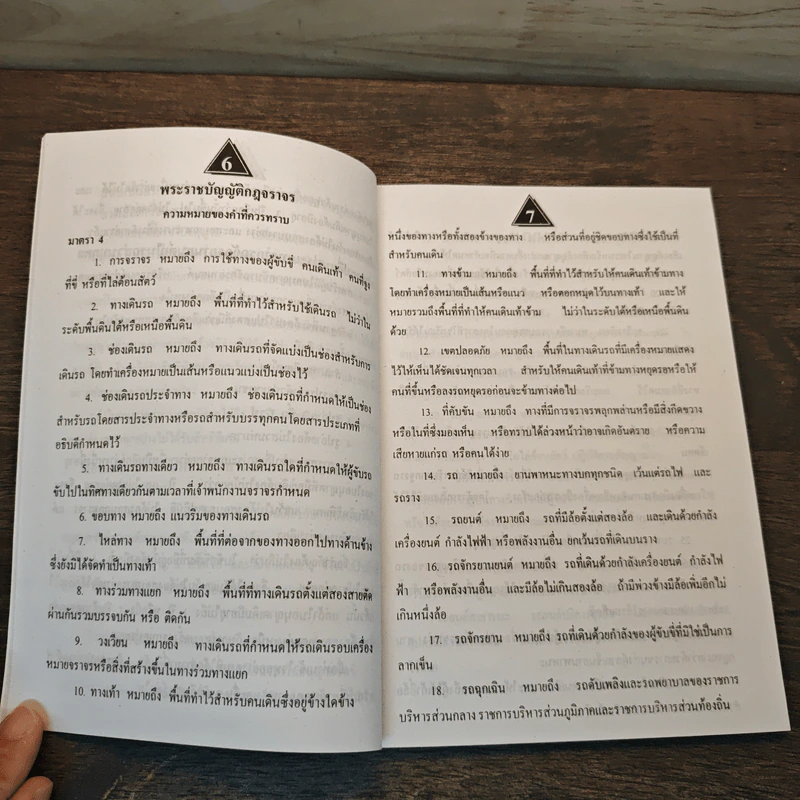 6
พระราชบัญญัติกฎจราจร
ความหมายของคำที่ควรทราบ
มาตรา 4
1. การจราจร หมายถึง การใช้ทางของผู้ขับขี่ คนเดินเท้า คนที่จูง
ที่ขี่ หรือที่ไล่ต้อนสัตว์
2. ทางเดินรถ หมายถึง พื้นที่ที่ทำไว้สำหรับใช้เดินรถ ไม่ว่าใน
ระดับพื้นดินใต้หรือเหนือพื้นดิน
3. ช่องเดินรถ หมายถึง ทางเดินรถที่จัดแบ่งเป็นช่องสำหรับการ
เดินรถ โดยทำเครื่องหมายเป็นเส้นหรือแนวแบ่งเป็นช่องไว้
4. ช่องเดินรถประจำทาง หมายถึง ช่องเดินรถที่กำหนดให้เป็นช่อง
สำหรับรถโดยสารประจำทางหรือรถสำหรับบรรทุกคนโดยสารประเภทที่
อธิบดีกำหนดไว้
5. ทางเดินรถทางเดียว หมายถึง ทางเดินรถใดที่กำหนดให้ผู้ขับรถ
ขับไปในทิศทางเดียวกันตามเวลาที่เจ้าพนักงานจราจรกำหนด
6. ขอบทาง หมายถึง แนวริมของทางเดินรถ
7. ไหล่ทาง หมายถึง พื้นที่ที่ต่อจากของทางออกไปทางด้านข้าง
ซึ่งยังมิได้จัดทำเป็นทางเท้า
8. ทางร่วมทางแยก หมายถึง พื้นที่ที่ทางเดินรถตั้งแต่สองสายตัด
ผ่านกันรวมบรรจบกัน หรือ ติดกัน
9. วงเวียน หมายถึง ทางเดินรถที่กำหนดให้รถเดินรอบเครื่อง
หมายจราจรหรือสิ่งที่สร้างขึ้นในทางร่วมทางแยก
10. ทางเท้า หมายถึง พื้นที่ทำไว้สำหรับคนเดินซึ่งอยู่ข้างใดข้าง
7
หนึ่งของทางหรือทั้งสองข้างของทาง หรือส่วนที่อยู่ชิดขอบทางซึ่งใช้เป็นที่
สำหรับคนเดิน
11. ทางข้าม หมายถึง พื้นที่ที่ทำไว้สำหรับให้คนเดินเท้าข้ามทาง
โดยทำเครื่องหมายเป็นเส้นหรือแนว หรือตอกหมุดไว้บนทางเท้า และให้
หมายรวมถึงพื้นที่ที่ทำให้คนเดินเท้าข้าม ไม่ว่าในระดับใต้หรือเหนือพื้นดิน
ด้วย
12. เขตปลอดภัย หมายถึง พื้นที่ในทางเดินรถที่มีเครื่องหมายแสดง
ไว้ให้เห็นได้ชัดเจนทุกเวลา สำหรับให้คนเดินเท้าที่ข้ามทางหยุดรอหรือให้
คนที่ขึ้นหรือลงรถหยุดรอก่อนจะข้ามทางต่อไป
13. ที่คับขัน หมายถึง ทางที่มีการจราจรพลุกพล่านหรือมีสิ่งกีดขวาง
หรือในที่ซึ่งมองเห็น หรือทราบได้ล่วงหน้าว่าอาจเกิดอันตราย หรือความ
เสียหายแก่รถ หรือคนได้ง่าย
14. รถ หมายถึง ยานพาหนะทางบกทุกชนิด เว้นแต่รถไฟ และ
รถราง
15. รถยนต์ หมายถึง รถที่มีล้อตั้งแต่สองล้อ และเดินด้วยกำลัง
เครื่องยนต์ กำลังไฟฟ้า หรือพลังงานอื่น ยกเว้นรถที่เดินบนราง
16. รถจักรยานยนต์ หมายถึง รถที่เดินด้วยกำลังเครื่องยนต์ กำลังไฟ
ฟ้า หรือพลังงานอื่น และมีล้อไม่เกินสองล้อ ถ้ามีพ่วงข้างมีล้อเพิ่มอีกไม่
เกินหนึ่งล้อ
17. รถจักรยาน หมายถึง รถที่เดินด้วยกำลังของผู้ขับขี่ที่มิใช่เป็นการ
ลากเข็น
18. รถฉุกเฉิน หมายถึง รถดับเพลิงและรถพยาบาลของราชการ
บริหารส่วนกลาง ราชการบริหารส่วนภูมิภาคและราชการบริหารส่วนท้องถิ่น